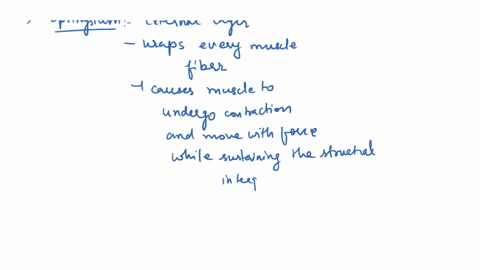 :- External layer
- Wraps every muscle
fiber
→ causes muscle to
undergo contraction
and move with force
while sustaining the structral
integ